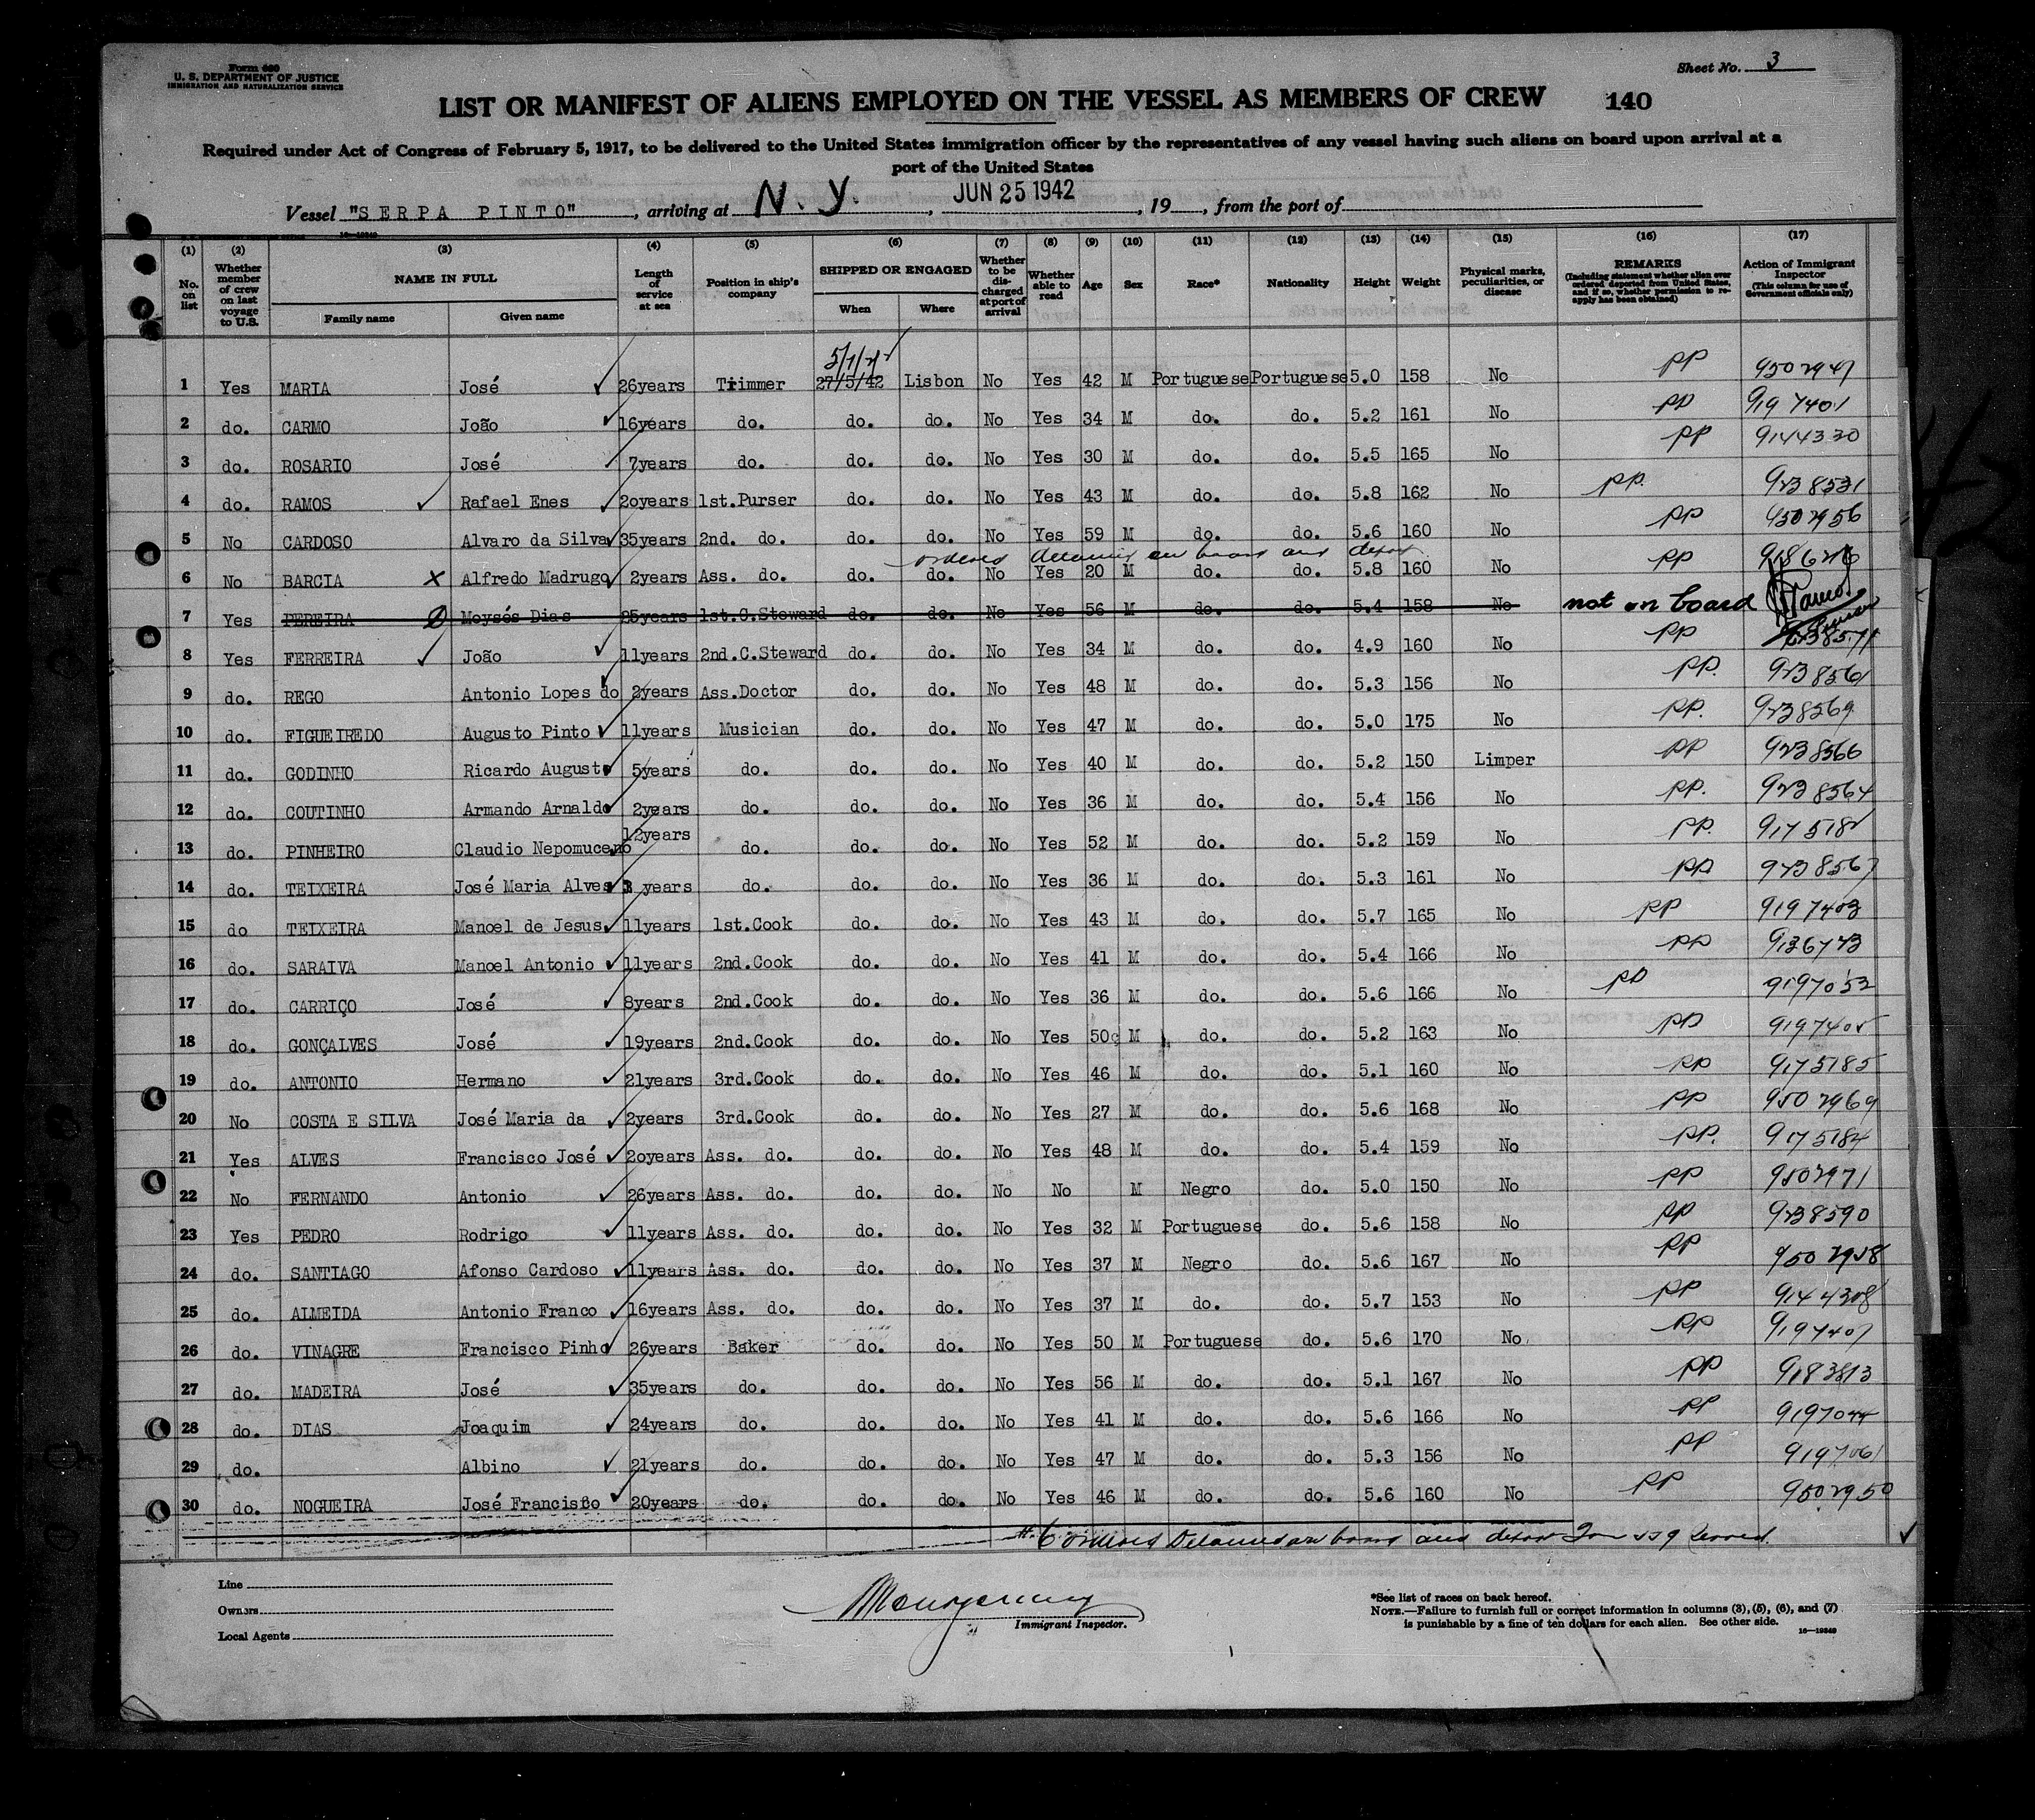 Form 680
U. S. DEPARTMENT OF JUSTICE
IMMIGRATION AND NATURALIZATION SERVICE
Sheet No. 3
LIST OR MANIFEST OF ALIENS EMPLOYED ON THE VESSEL AS MEMBERS OF CREW 140
Required under Act of Congress of February 5, 1917, to be delivered to the United States immigration officer by the representatives of any vessel having such aliens on board upon arrival at a
port of the United States
Vessel "SERPA PINTO", arriving at N. Y., JUN 25 1942, 19, from the port of
(1) (2) (3) (4) (5) (6) (7) (8) (9) (10) (11) (12) (13) (14) (15) (16) (17)
No. on list Whether member of crew on last voyage to U.S. NAME IN FULL Family name Given name Length of service at sea Position in ship's company SHIPPED OR ENGAGED When Where Whether to be discharged at port of arrival Whether able to read Age Sex Race* Nationality Height Weight Physical marks, peculiarities, or disease REMARKS (Including statement whether alien ever ordered deported from United States, and if so, whether permission to reapply has been obtained) Action of Immigrant Inspector (This column for use of Government officials only)
1 Yes MARIA José 26years Trimmer 27/5/42 Lisbon No Yes 42 M Portuguese Portuguese 5.0 158 No PP
2 do. CARMO João 16years do. do. do. No Yes 34 M do. do. 5.2 161 No PP 9197401
3 do. ROSARIO José 7years do. do. do. No Yes 30 M do. do. 5.5 165 No PP 9144330
4 do. RAMOS Rafael Enes 2oyears 1st.Purser do. do. No Yes 43 M do. do. 5.8 162 No PP. 9238531
5 No CARDOSO Alvaro da Silva 35years 2nd. do. do. do. No Yes 59 M do. do. 5.6 160 No PP 9502956
ordered detained on board and deport
6 No BARCIA X Alfredo Madrugo 2years Ass. do. do. do. No Yes 20 M do. do. 5.8 160 No PP
7 Yes PEREIRA Moysés Dias 25years 1st.C.Steward do. do. No Yes 56 M do. do. 5.4 158 No not on board
8 Yes FERREIRA João 11years 2nd.C.Steward do. do. No Yes 34 M do. do. 4.9 160 No PP 9238571
9 do. REGO Antonio Lopes do 2years Ass.Doctor do. do. No Yes 48 M do. do. 5.3 156 No PP. 9238561
10 do. FIGUEIREDO Augusto Pinto 11years Musician do. do. No Yes 47 M do. do. 5.0 175 No PP. 9238569
11 do. GODINHO Ricardo Augusto 5years do. do. do. No Yes 40 M do. do. 5.2 150 Limper PP 9238566
12 do. COUTINHO Armando Arnaldo 2years do. do. do. No Yes 36 M do. do. 5.4 156 No PP. 9238564
13 do. PINHEIRO Claudio Nepomuceno 12years do. do. do. No Yes 52 M do. do. 5.2 159 No PP. 9175182
14 do. TEIXEIRA José Maria Alves 3 years do. do. do. No Yes 36 M do. do. 5.3 161 No PP 9238567
15 do TEIXEIRA Manoel de Jesus. 11years 1st.Cook do. do. No Yes 43 M do. do. 5.7 165 No PP 9197403
16 do. SARAIVA Manoel Antonio 11years 2nd.Cook do. do. No Yes 41 M do. do. 5.4 166 No PP 9136743
17 do. CARRIÇO José 8years 2nd.Cook do. do. No Yes 36 M do. do. 5.6 166 No PP 9197052
18 do. GONÇALVES José 19years 2nd.Cook do. do. No Yes 50 M do. do. 5.2 163 No PP 9197405
19 do. ANTONIO Hermano 21years 3rd.Cook do. do. No Yes 46 M do. do. 5.1 160 No PP 9175185
20 No COSTA E SILVA José Maria da 2years 3rd.Cook do. do. No Yes 27 M do. do. 5.6 168 No PP 9502969
21 Yes ALVES Francisco José 2oyears Ass. do. do. do. No Yes 48 M do. do. 5.4 159 No PP. 9175184
22 No FERNANDO Antonio 26years Ass. do. do. do. No No M Negro do. 5.0 150 No PP 9502971
23 Yes PEDRO Rodrigo 11years Ass. do. do. do. No Yes 32 M Portuguese do. 5.6 158 No PP 9238590
24 do. SANTIAGO Afonso Cardoso 11years Ass. do. do. do. No Yes 37 M Negro do. 5.6 167 No PP 9502958
25 do. ALMEIDA Antonio Franco 16years Ass. do. do. do. No Yes 37 M do. do. 5.7 153 No PP 9144308
26 do. VINAGRE Francisco Pinho 26years Baker do. do. No Yes 50 M Portuguese do. 5.6 170 No. PP 9197407
27 do. MADEIRA José 35years do. do. do. No Yes 56 M do. do. 5.1 167 No PP 9183813
28 do. DIAS Joaquim 24years do. do. do. No Yes 41 M do. do. 5.6 166 No PP 9197044
29 do. Albino 21years do. do. do. No Yes 47 M do. do. 5.3 156 No PP 9197061
30 do. NOGUEIRA José Francisco 20years do. do. do. No Yes 46 M do. do. 5.6 160 No PP 9502950
#6 ordered Detained on board and deport served.
Line
Owners
Local Agents
Immigrant Inspector.
*See list of races on back hereof.
NOTE.—Failure to furnish full or correct information in columns (3), (5), (6), and (7)
is punishable by a fine of ten dollars for each alien. See other side.
16—19349